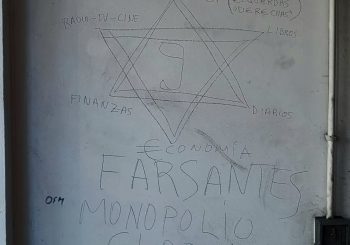 (IZQUIERDAS
DERECHAS)
RADIO-TV-CINE
LIBROS
9
FINANZAS
DIARIOS
€CONOMÍA
FARSANTES
MONOPOLIO